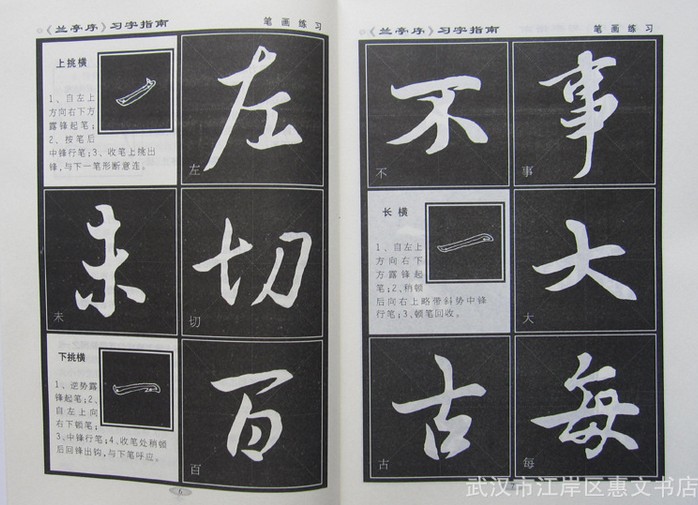 《兰亭序》习字指南
笔画练习
上挑横
1、自左上
方向右下方
露锋起笔;
2、按笔后
中锋行笔;3、收笔上挑出
锋,与下一笔形断意连。
左
左
未
未
切
切
下挑横
1、逆势露
锋起笔;2、
自左上向
右下顿笔;
3、中锋行笔;4、收笔处稍顿
后回锋出钩,与下笔呼应。
百
百
6
《兰亭序》习字指南
笔画练习
不
不
事
事
长横
1、自左上
方向右下
方露锋起
笔;2、稍顿
后向右上略带斜势中锋
行笔;3、顿笔回收。
大
大
古
古
每
每
武汉市江岸区惠文书店